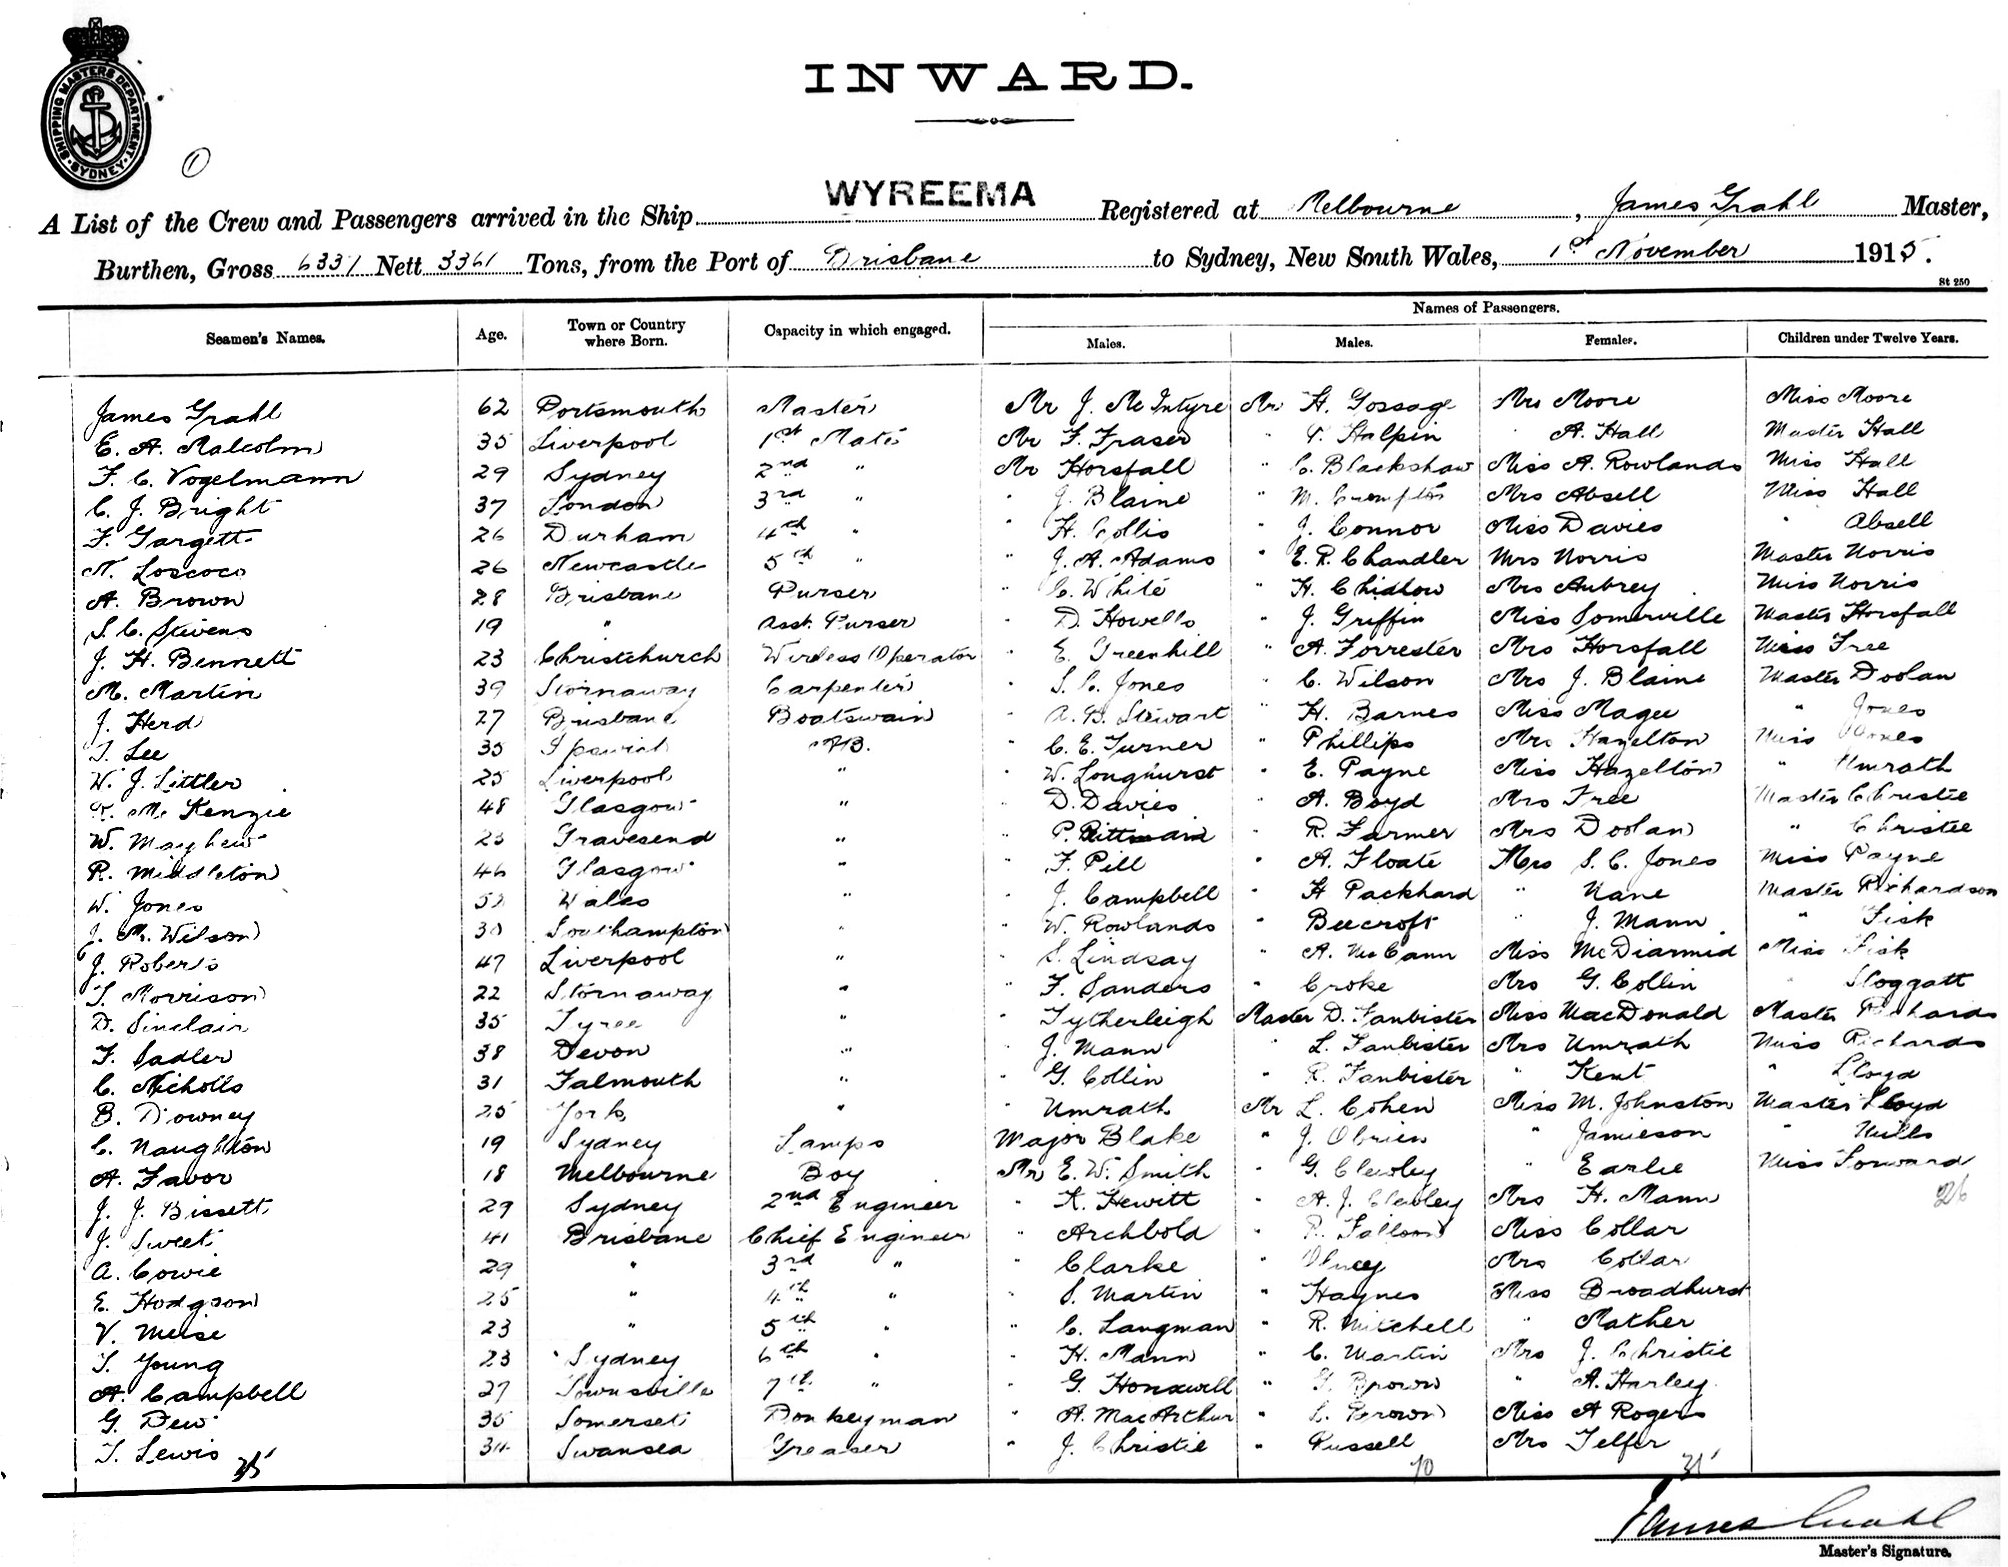 SHIPPING MASTERS DEPARTMENT. SYDNEY
1
INWARD.
A List of the Crew and Passengers arrived in the Ship WYREEMA Registered at Melbourne, James Grahl Master,
Burthen, Gross 6331 Nett 3361 Tons, from the Port of Brisbane to Sydney, New South Wales, 1st November 1915.
St 250
Names of Passengers.
Seamen's Names. Age. Town or Country where Born. Capacity in which engaged. Males. Males. Females. Children under Twelve Years.
James Grahl 62 Portsmouth Master Mr J. McIntyre Mr H. Gossage Mrs Moore Miss Moore
E. A. Malcolm 35 Liverpool 1st Mate Mr F. Fraser " Halpin " A. Hall Master Hall
F. C. Vogelmann 29 Sydney 2nd " Mr Horsfall " C. Blackshaw Miss A. Rowlands Miss Hall
C. J. Bright 37 London 3rd " " J. Blaine " M. Crompton Mrs Absell Miss Hall
F. Gargett 26 Durham 4th " " H. Collis " J. Connor Miss Davies " Absell
N. Loscoco 26 Newcastle 5th " " J. A. Adams " E. R. Chandler Mrs Norris Master Norris
A. Brown 28 Brisbane Purser " C. White " H. Chidlow Mrs Aubrey Miss Norris
S. C. Stevens 19 " Asst. Purser " D. Howells " J. Griffin Miss Somerville Master Horsfall
J. H. Bennett 23 Christchurch Wireless Operator " E. Greenhill " A. Forrester Mrs Horsfall Miss Free
M. Martin 39 Stornaway Carpenter " S. C. Jones " C. Wilson Mrs J. Blaine Master Doolan
J. Herd 27 Brisbane Boatswain " A. B. Stewart " H. Barnes Miss Magee " Jones
T. Lee 35 Ipswich AB. " C. E. Turner " Phillips Mrs Hazelton Miss Jones
W. J. Littler 25 Liverpool " " W. Longhurst " E. Payne Miss Hazelton " Umrath
K. McKenzie 48 Glasgow " " D. Davies " A. Boyd Mrs Free Master Christie
W. Mayhew 23 Gravesend " " P. " R. Farmer Mrs Doolan " Christie
R. Middleton 46 Glasgow " " F. Pill " A. Floate Mrs S. C. Jones Miss Payne
W. Jones Wales " " J. Campbell " H Packhard " Nane Master Richardson
J. M. Wilson 30 Southampton " " W. Rowlands " Beecroft " J. Mann " Fisk
J. Roberts 47 Liverpool " " S. Lindsay " A. McCann Miss McDiarmid Miss Fisk
T. Morrison 22 Stornaway " " F. Sanders " Croke Mrs G. Collin " Sloggatt
D. Sinclair 35 Tyree " " Tytherleigh Master D. Fanbister Miss MacDonald Master Richards
F. Sadler 38 Devon " " J. Mann " L. Fanbister Mrs Umrath Miss Richards
C. Nicholls 31 Falmouth " " G. Collin " R. Fanbister " Kent " Lloyd
B. Downey 25 York " " Umrath Mr L. Cohen Miss M. Johnston Master Lloyd
C. Naughton 19 Sydney Lamps Major Blake " J. Obrien " Jamieson " Mills
A. Favor 18 Melbourne Boy Mr E. W. Smith " G. Clewley " Earlie Miss Forward
J. J. Bissett 29 Sydney 2nd Engineer " K. Hewitt " A. J. Clewley Mrs H. Mann 26
J. Sweet 41 Brisbane Chief Engineer " Archbold " Falloon Miss Collar
A. Cowie 29 " 3rd " " Clarke " Mrs Collar
E. Hodgson 25 " 4th " " S. Martin " Haynes Miss Broadhurst
V. Meise 23 " 5th " " C. Langman " R. Mitchell " Mather
T. Young 23 Sydney 6th " " H. Mann " C. Martin Mrs J. Christie
A. Campbell 27 Townsville 7th " " G. Honeywell " Brown " A. Harley
G. Dew 35 Somerset Donkeyman " A. MacArthur " Brown Miss A Rogers
T. Lewis 34 Swansea Greaser " J. Christie " Russell Mrs Telfer
35 70 35
James Grahl
Master's Signature.